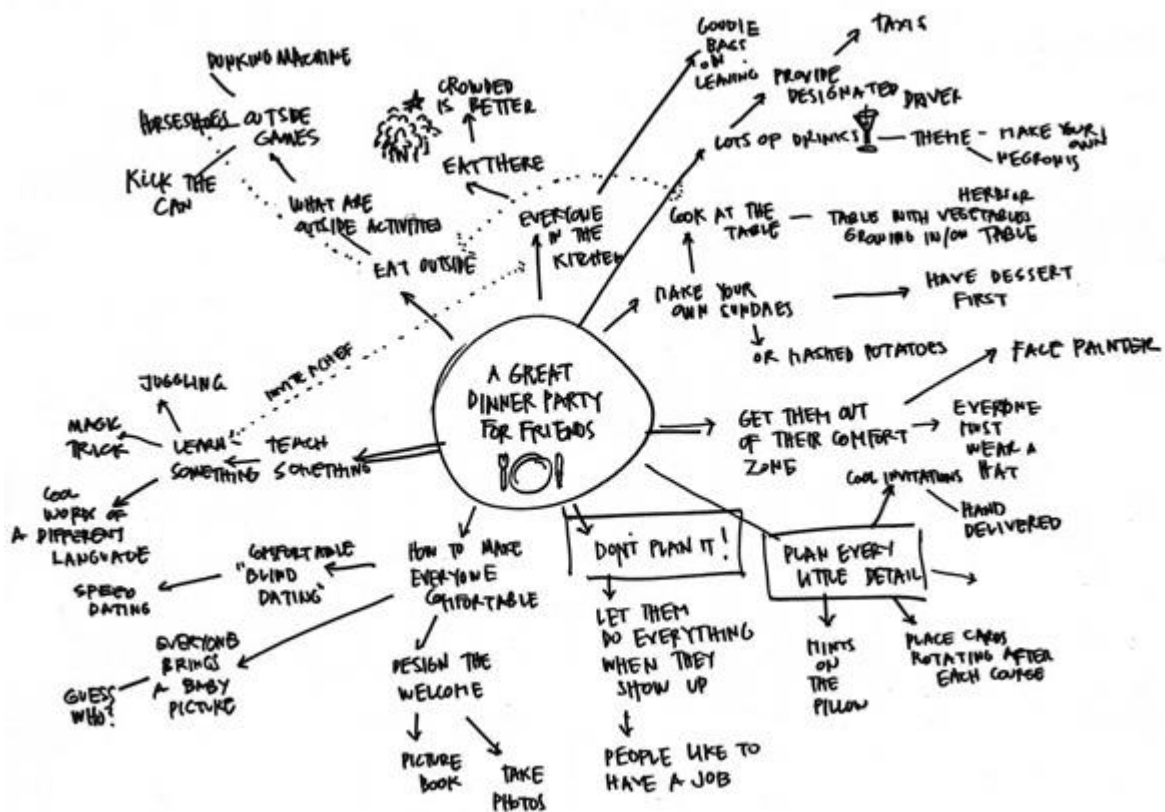 A GREAT
DINNER PARTY
FOR FRIENDS
EAT OUTSIDE
WHAT ARE
OUTSIDE ACTIVITIES
OUTSIDE
GAMES
DUNKING MACHINE
HORSESHOES
KICK THE
CAN
EVERYONE
IN THE
KITCHEN
EAT THERE
CROWDED
IS BETTER
GOODIE
BAGS
ON
LEAVING
LOTS OF DRINKS
PROVIDE
DESIGNATED DRIVER
TAXIS
THEME - MAKE YOUR
OWN
NEGRONIS
MAKE YOUR
OWN SUNDAES
LOOK AT THE
TABLE
HERBS OR
TABLE WITH VEGETABLES
GROWING IN/ON TABLE
HAVE DESSERT
FIRST
OR MASHED POTATOES
GET THEM OUT
OF THEIR COMFORT
ZONE
FACE PAINTER
EVERYONE
MUST
WEAR A
HAT
PLAN EVERY
LITTLE DETAIL
COOL INVITATIONS
HAND
DELIVERED
PLACE CARDS
ROTATING AFTER
EACH COURSE
MINTS
ON
THE
PILLOW
DON'T PLAN IT!
LET THEM
DO EVERYTHING
WHEN THEY
SHOW UP
PEOPLE LIKE TO
HAVE A JOB
HOW TO MAKE
EVERYONE
COMFORTABLE
DESIGN THE
WELCOME
PICTURE
BOOK
TAKE
PHOTOS
COMFORTABLE
"BLIND
DATING"
SPEED
DATING
EVERYONE
BRINGS
A BABY
PICTURE
GUESS
WHO?
TEACH
SOMETHING
LEARN
SOMETHING
JUGGLING
MAGIC
TRICK
COOL
WORDS OF
A DIFFERENT
LANGUAGE
INVITE A CHEF